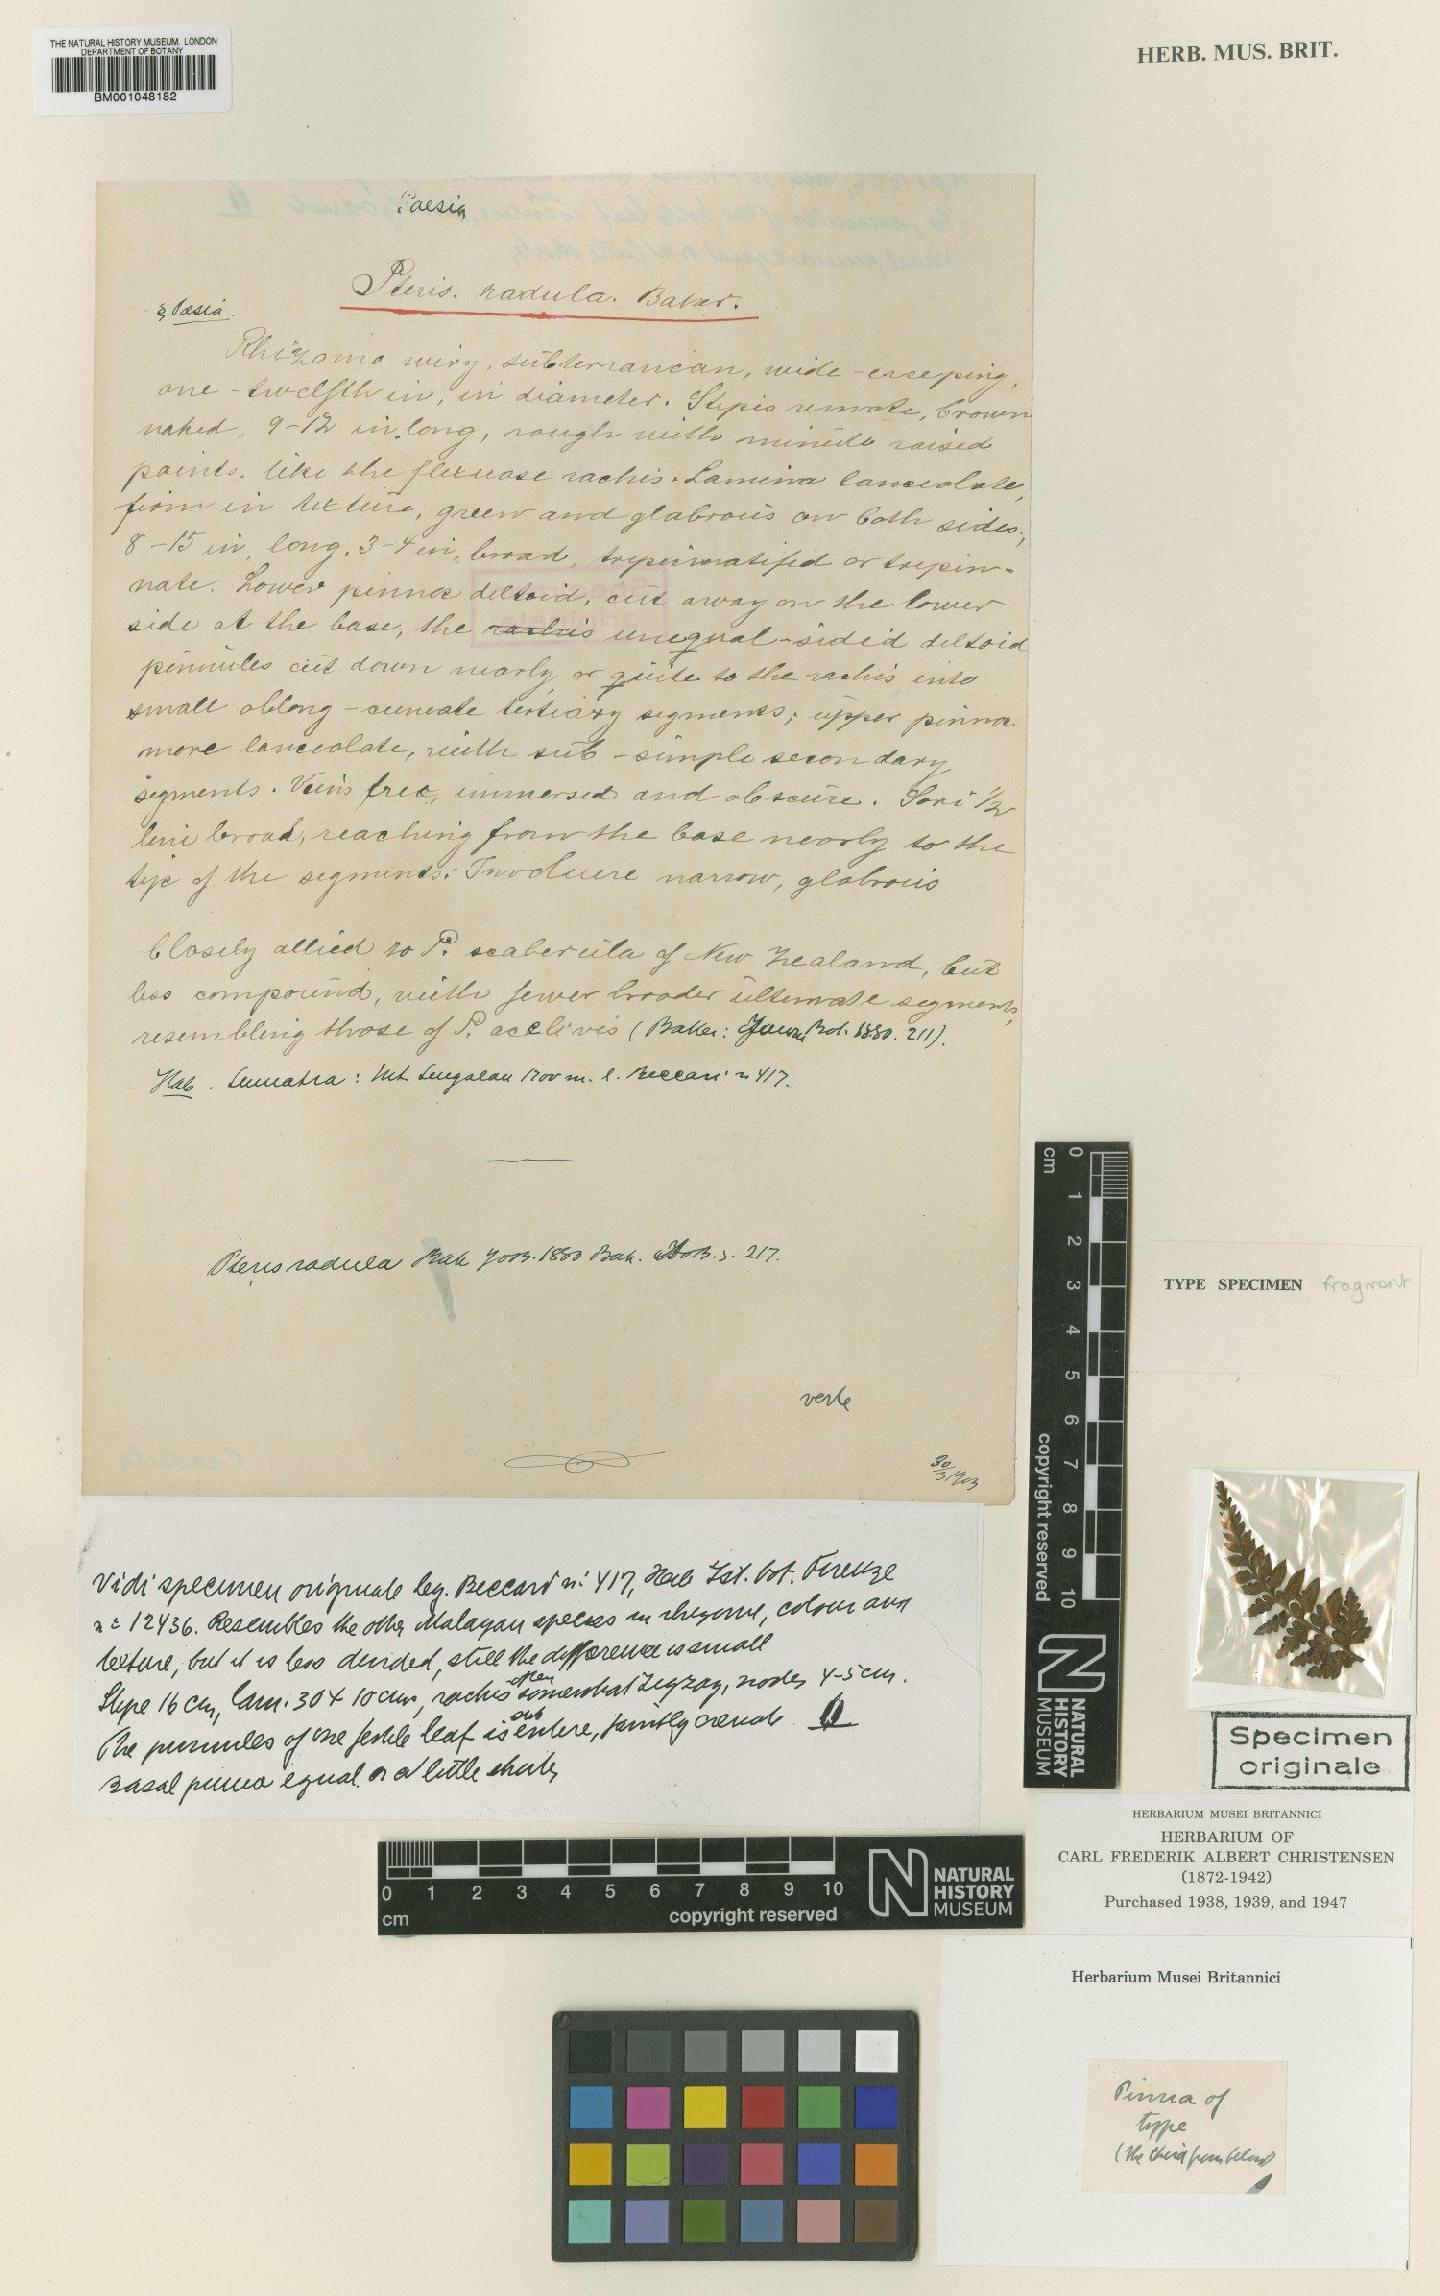 THE NATURAL HISTORY MUSEUM, LONDON
DEPARTMENT OF BOTANY
BM001048182
HERB. MUS. BRIT.
Paesia
Pteris. radula. Baker.
§ Pæsia.
Rhizome wiry, subterranean, wide-creeping,
one-twelfth in, in diameter. Stipes remote, brown
naked, 9-12 in. long, rough with minute raised
points, like the flexuose rachis. Lamina lanceolate,
firm in texture, green and glabrous on both sides,
8-15 in, long, 3-4 in, broad, tripinnatifid or tripin-
nate. Lower pinnæ deltoid, cut away on the lower
side at the base, the rachis unequal-sided deltoid
pinnules cut down nearly or quite to the rachis into
small oblong-cuneate tertiary segments; upper pinnæ
more lanceolate, with sub-simple secondary
segments. Veins free, immersed and obscure. Sori 1/2
line broad, reaching from the base nearly to the
tip of the segments. Involucre narrow, glabrous
Closely allied to P. scaberula of New Zealand, but
less compound, with fewer broader ultimate segments,
resembling those of P. acclivis (Baker: Journ Bot. 1880. 211).
Hab. Sumatra: Mt Singalan 1700 m. l. Beccari n 417.
Pteris radula Bak JoB. 1880 Bak. s. 217.
verte
30/3 1903
Vidi specimen originale leg. Beccari n: 417, Herb Ist. bot. Firenze
n= 12436. Resembles the other Malayan species in rhizome, colour and
texture, but it is less divided, still the difference is small
Stipe 16 cm, lam. 30 x 10 cm, rachis often somewhat zigzag, nodes 4-5 cm.
The pinnules of the fertile leaf is sub entire, faintly crenate
Basal pinna equal or a little shorter
0 1 2 3 4 5 6 7 8 9 10
cm
copyright reserved
NATURAL
HISTORY
MUSEUM
TYPE SPECIMEN fragment
Specimen
originale
HERBARIUM MUSEI BRITANNICI
HERBARIUM OF
CARL FREDERIK ALBERT CHRISTENSEN
(1872-1942)
Purchased 1938, 1939, and 1947
0 1 2 3 4 5 6 7 8 9 10
cm
copyright reserved
NATURAL
HISTORY
MUSEUM
Herbarium Musei Britannici
Pinna of
type
(the third from below)